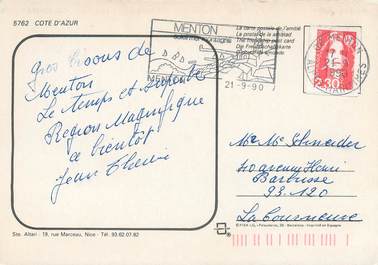 5762 COTE D'AZUR
MENTON
La carte postale de l'amitié
La postal de la amistad
The friendship post card
Die Freundschaftskarte
MENTON
21-9-90
21-9
1990
2,30
Gros bisous de
Menton
Le temps est superbe
Region Magnifique
a bientôt
Jean Thierie
Mr Me Schneider
40 avenue Henri
Barbusse
93.120
La Courneuve
Ste. Altari - 19, rue Marceau, Nice - Tél. 93.62.07.82